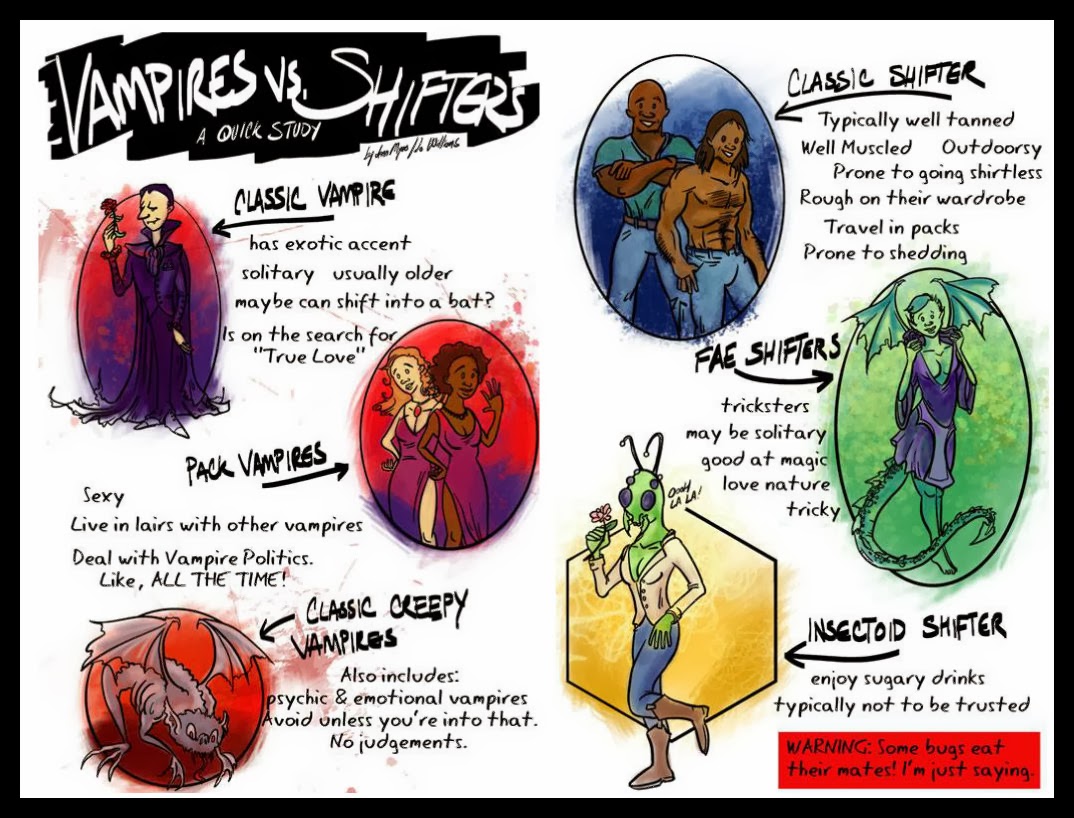 VAMPIRES VS. SHIFTERS
A QUICK STUDY
CLASSIC VAMPIRE
has exotic accent
solitary usually older
maybe can shift into a bat?
Is on the search for
"True Love"
PACK VAMPIRES
Sexy
Live in lairs with other vampires
Deal with Vampire Politics.
Like, ALL THE TIME!
CLASSIC CREEPY
VAMPIRES
Also includes:
psychic & emotional vampires
Avoid unless you're into that.
No judgements.
CLASSIC SHIFTER
Typically well tanned
Well Muscled Outdoorsy
Prone to going shirtless
Rough on their wardrobe
Travel in packs
Prone to shedding
FAE SHIFTERS
tricksters
may be solitary
good at magic
love nature
tricky
OooH
LA LA!
INSECTOID SHIFTER
enjoy sugary drinks
typically not to be trusted
WARNING: Some bugs eat
their mates! I'm just saying.